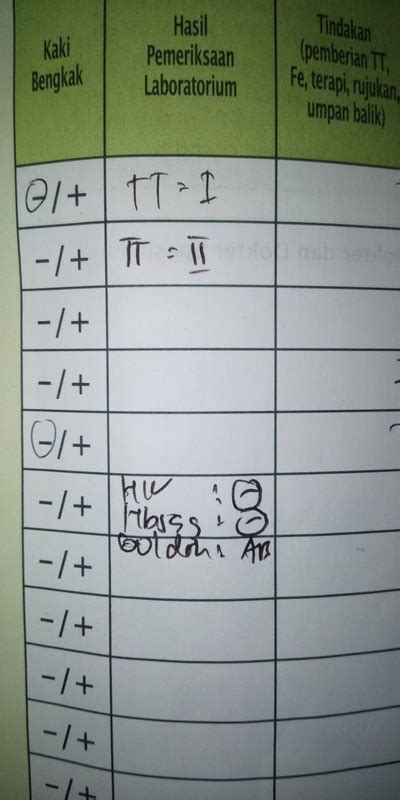 Kaki Bengkak
Hasil Pemeriksaan Laboratorium
Tindakan (pemberian TT, Fe, terapi, rujukan, umpan balik)
-/+ TT = I
-/+ TT = II
-/+
-/+
-/+
-/+ HIV : -
HbsAg : -
-/+ Gol doh : AB
-/+
-/+
-/+
-/+